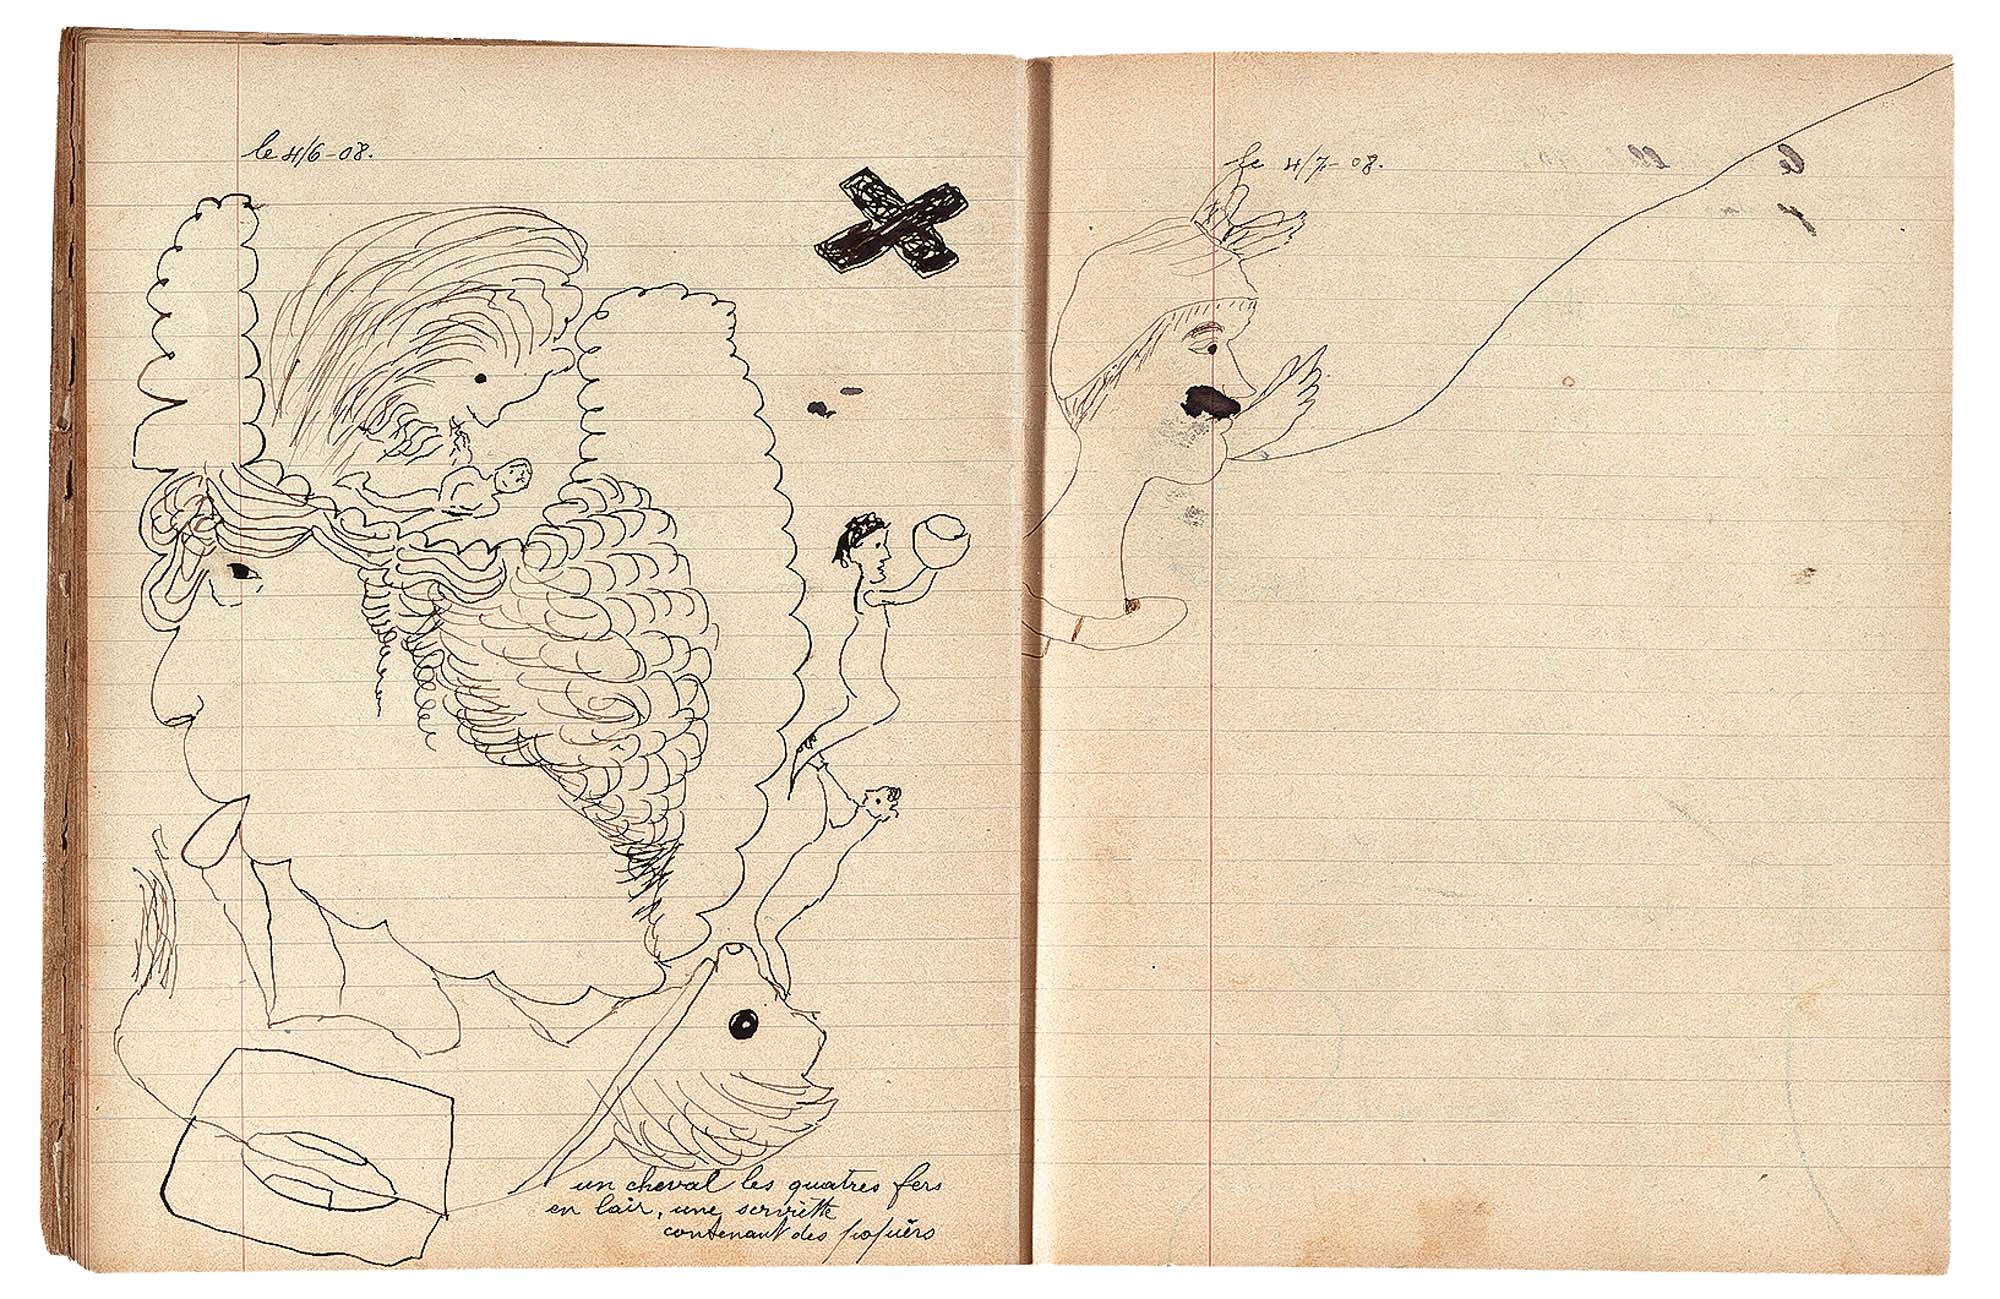 le 4/6-08.
le 4/7-08.
un cheval les quatres fers
en lair, une serviette
contenant des papiers